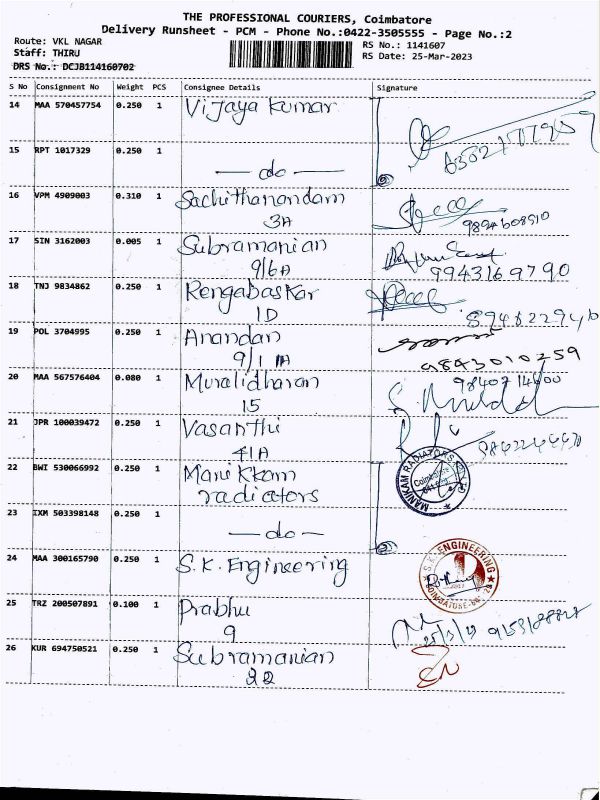 THE PROFESSIONAL COURIERS, Coimbatore
Delivery Runsheet - PCM - Phone No.:0422-3505555 - Page No.:2
Route: VKL NAGAR
Staff: THIRU
DRS No.: DCJB114160702
RS No.: 1141607
RS Date: 25-Mar-2023
S No Consignment No Weight PCS Consignee Details Signature
14 MAA 570457754 0.250 1 Vijaya kumar
15 RPT 1017329 0.250 1 — do —
16 VPM 4909003 0.310 1 Sachithanandam
3A
9894608910
17 SIN 3162003 0.005 1 Subramanian
9/6A
9943169790
18 TNJ 9834862 0.250 1 Rengabaskar
1D
19 POL 3704995 0.250 1 Anandan
9/1
9843010259
20 MAA 567576404 0.080 1 Muralidharan
15
21 JPR 100039472 0.250 1 Vasanthi
41A
22 BWI 530066992 0.250 1 Manikkam
radiators
MANIKAM RADIATORS
Coimbatore
23 IXM 503398148 0.250 1 — do —
24 MAA 300165790 0.250 1 S.K. Engineering
S.K. ENGINEERING
25 TRZ 200507891 0.100 1 Prabhu
9
26 KUR 694750521 0.250 1 Subramanian
22